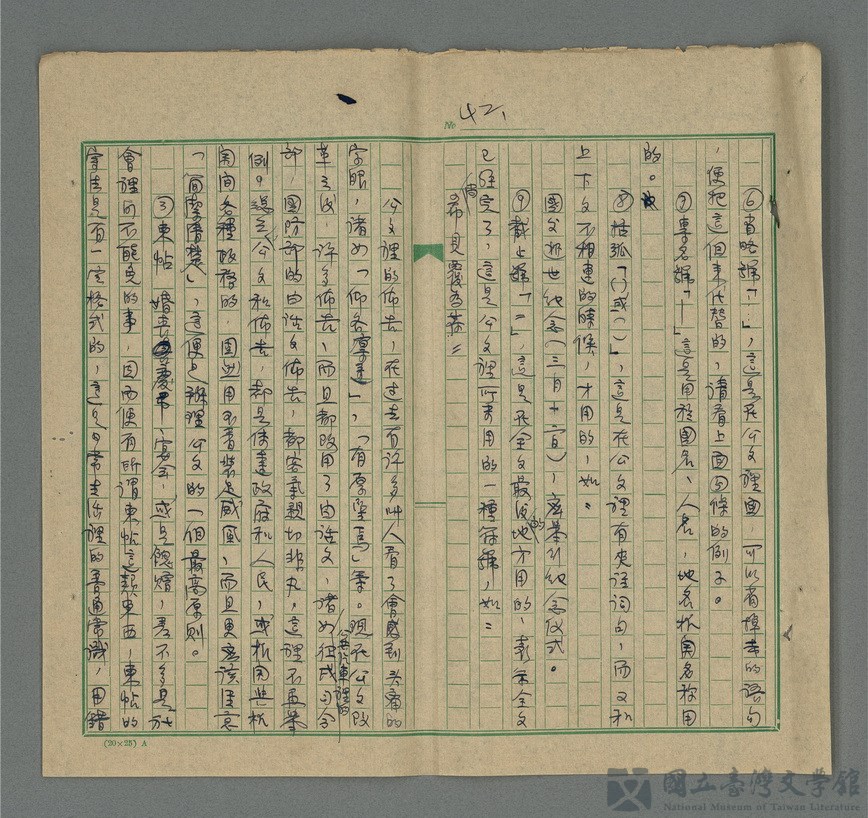 № 42.
⑥省略號「…」，這是在公文裡面，可以省掉去的語句
，便把這個來代替的，請看上面四條的例子。
⑦專名號「—」這是用於國名、人名，地名机関名称用
的。
⑧括弧「（）或（）」，這是在公文裡有夾註詞句，而又和
上下文不相連的時候，才用的，如：
國父逝世紀念（三月十二日），應举行紀念仪式。
⑨截止號「＝」，這是在全文最後的地方用的，表示全文
已經完了，這是公文裡所専用的一種符號，如：
希 貝覆為荷＝
公文裡的佈告，在过去有许多叫人看了會感到头痛的
字眼，諸如「仰各凜遵」，「有厚望焉」等。现在公文改
革之後，许多佈告，而且都改用了白話文，諸如
公共汽車裡的
部，國防部的白话文佈告，都客氣親切非凡，這裡不再举
例。總之公文和佈告，都是傳達政府和人民，或机関與机
関间各種政務的，固然用不着裝足威風，而且更應該注意
「简單清楚」，這便是辦理公文的一個最高原则。
③柬帖 婚喪喜慶、宴会，或是餽贈，差不多是社
會裡所不能免的事，因而便有所謂柬帖這類東西，柬帖的
寫法是有一定格式的，這是日常生活裡的普通常識，用錯
(20×25) A
國立臺灣文學館
National Museum of Taiwan Literature